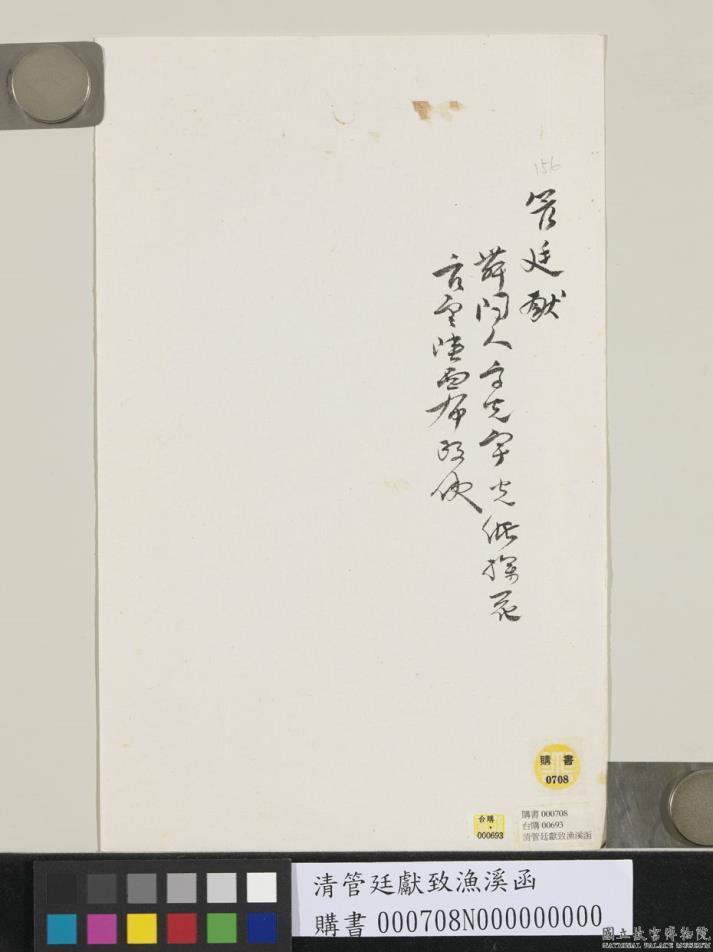 156
管廷獻
門人 光 字 光緒探花
布政使
購書
0708
台購
000693
購書 000708
台購 00693
清管廷獻致漁溪函
清管廷獻致漁溪函
購書 000708N000000000
國立故宮博物院
NATIONAL PALACE MUSEUM